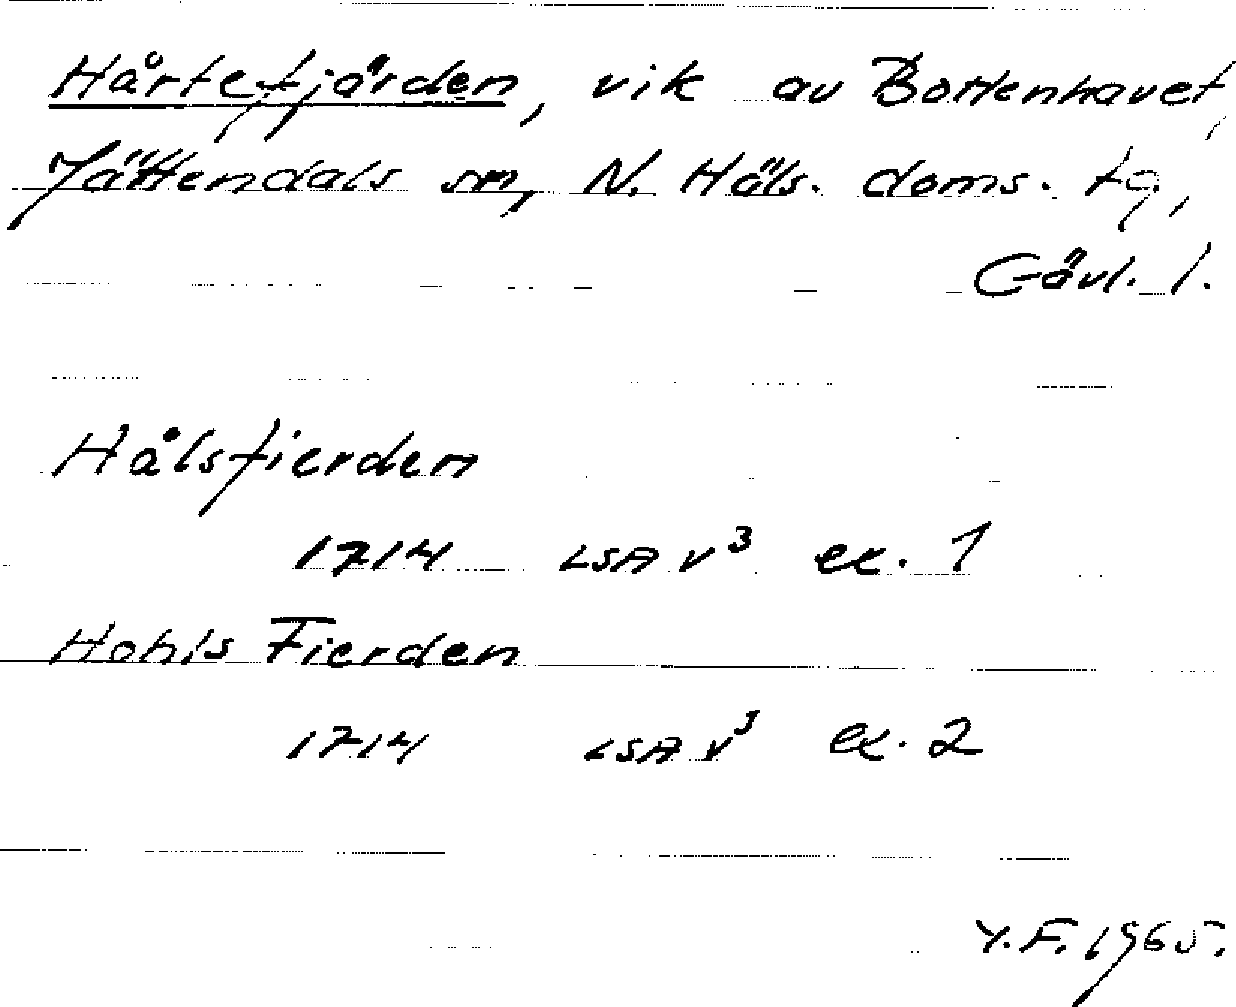 Hårtefjärden, vik av Bottenhavet,
Jättendals sn, N. Häls. doms. tg,
Gävl. l.
Hålsfierden
1714 LSA V³ ex. 1
Hohls Fierden
1714 LSA V³ ex. 2
Y.F. 1965.